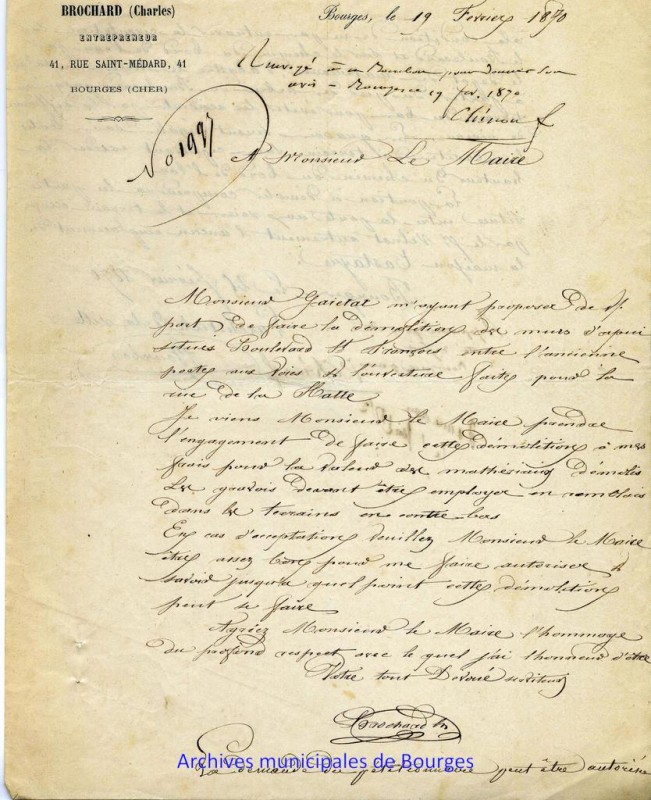 BROCHARD (Charles)
ENTREPRENEUR
41, RUE SAINT-MÉDARD, 41
BOURGES (CHER)
Bourges, le 19 Fevrier 1870
Renvoyé à Mr Bourdon pour donner son
avis - Bourges ce 19 fev. 1870
No 1997
A Monsieur Le Maire
Monsieur Gaietat m'ayant proposer de sa
part de faire la démolition de murs d'apui
situés Boulevard St François entre l'ancienne
porte aux Voies & l'ouverture faite pour la
rue de la Hatte
Je viens Monsieur le Maire prendre
l'engagement de faire cette démolition à mes
frais pour la valeur des mathériaux démolis
Les gravois devront être employer en remblais
dans les terrains en contre-bas
En cas d'acceptation veuillez Monsieur le Maire
être assez bon pour me faire autoriser &
savoir jusqu'à quel point cette démolition
peut se faire
Agréez Monsieur le Maire l'hommage
du profond respect avec le quel j'ai l'honneur d'être
Votre tout Devoué serviteur
Brochard
Archives municipales de Bourges
La demande du pétitionnaire peut être autorisée